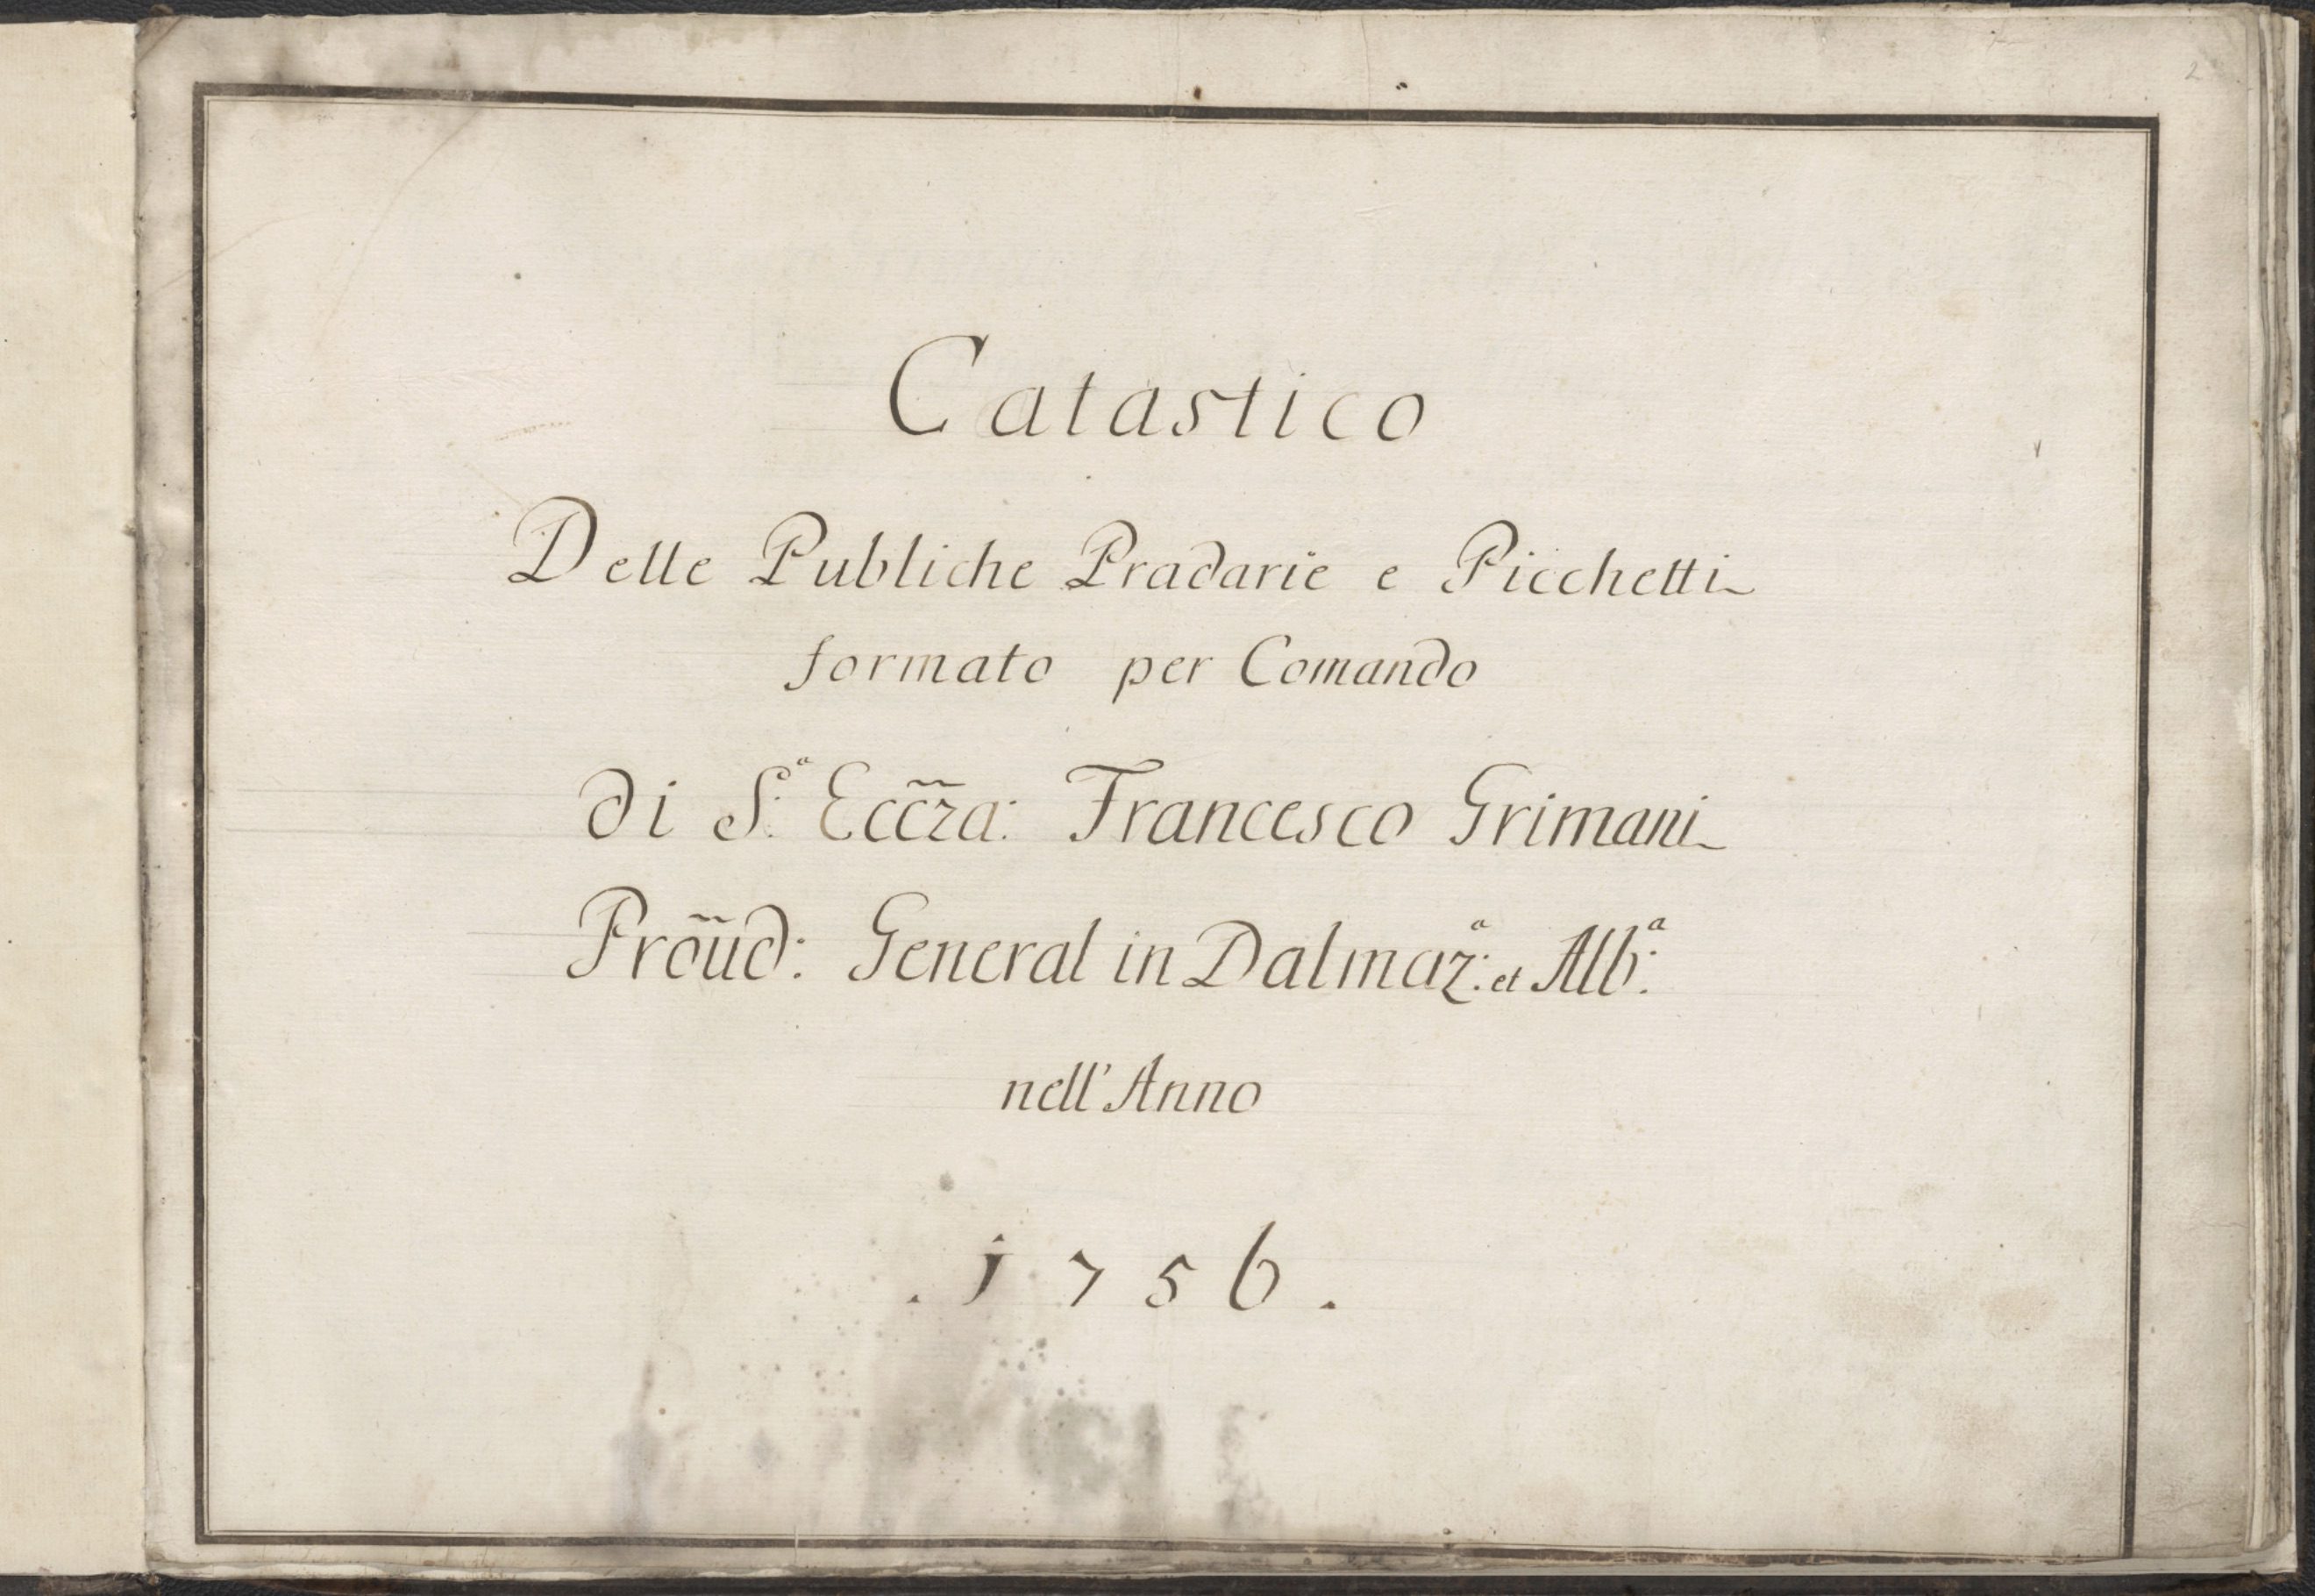 2
Catastico
Delle Publiche Pradarie e Picchetti
formato per Comando
di S.ª Ecc̃za: Francesco Grimani
Prõud: General in Dalmaz:ª et Alb:ª
nell'Anno
. 1756 .